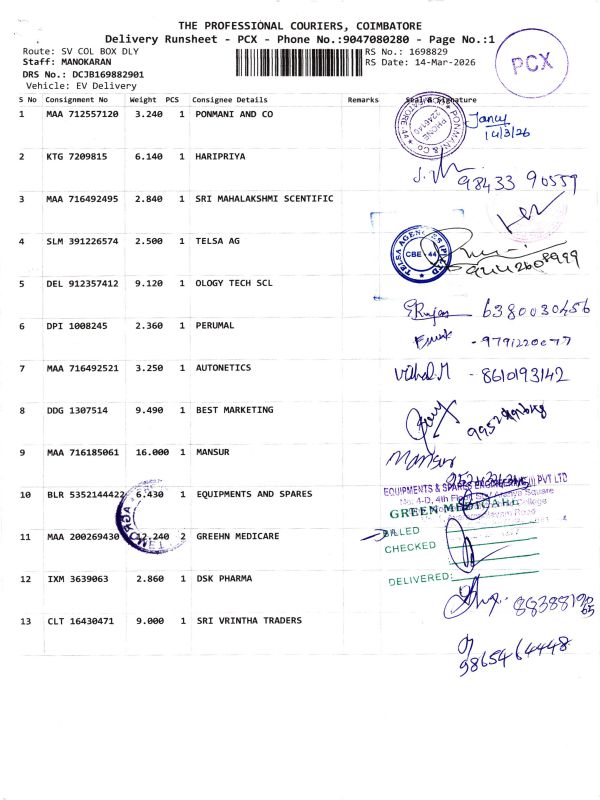 THE PROFESSIONAL COURIERS, COIMBATORE
Delivery Runsheet - PCX - Phone No.:9047080280 - Page No.:1
Route: SV COL BOX DLY
RS No.: 1698829
Staff: MANOKARAN
RS Date: 14-Mar-2026
DRS No.: DCJB169882901
Vehicle: EV Delivery
PCX
S No Consignment No Weight PCS Consignee Details Remarks Seal & Signature
1 MAA 712557120 3.240 1 PONMANI AND CO
14/3/26
2 KTG 7209815 6.140 1 HARIPRIYA
98433 90559
3 MAA 716492495 2.840 1 SRI MAHALAKSHMI SCENTIFIC
4 SLM 391226574 2.500 1 TELSA AG
TELSA AGENCIES (P) LTD
CBE - 44
5 DEL 912357412 9.120 1 OLOGY TECH SCL
6380030456
6 DPI 1008245 2.360 1 PERUMAL
7 MAA 716492521 3.250 1 AUTONETICS
- 8610193142
8 DDG 1307514 9.490 1 BEST MARKETING
9 MAA 716185061 16.000 1 MANSUR
Mansur
10 BLR 5352144422 6.430 1 EQUIPMENTS AND SPARES
EQUIPMENTS & SPARES ENGINEERING (I) PVT LTD
11 MAA 200269430 12.240 2 GREEHN MEDICARE
GREEN MEDICARE
BILLED
CHECKED
DELIVERED:
12 IXM 3639063 2.860 1 DSK PHARMA
13 CLT 16430471 9.000 1 SRI VRINTHA TRADERS
9865464448